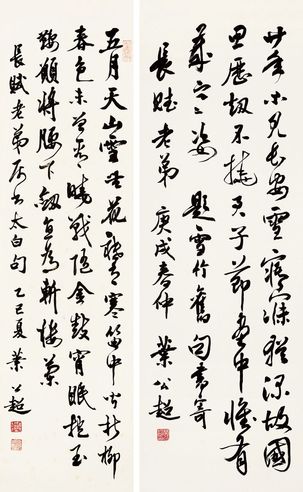 廿年不見長安雪寤寐猶深故國
思歷劫不撓君子節畫中惟有
歲寒姿 題雪竹舊句書寄
長賦老弟 庚戌春仲 葉公超
五月天山雪無花祗有寒笛中聞折柳
春色未曾看曉戰隨金鼓宵眠抱玉
鞍願將腰下劍直為斬樓蘭
長賦老弟屬書太白句 乙巳夏 葉公超